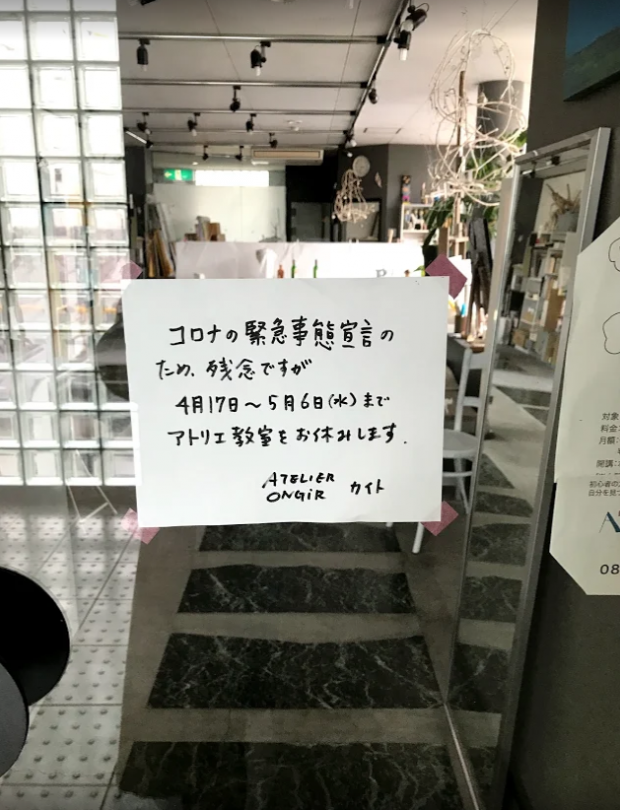 コロナの緊急事態宣言の
ため、残念ですが
4月17日～5月6日(水)まで
アトリエ教室をお休みします.
ATELIER
ONGiR カイト
対象
料金
月額:
開講:
初心者の
08